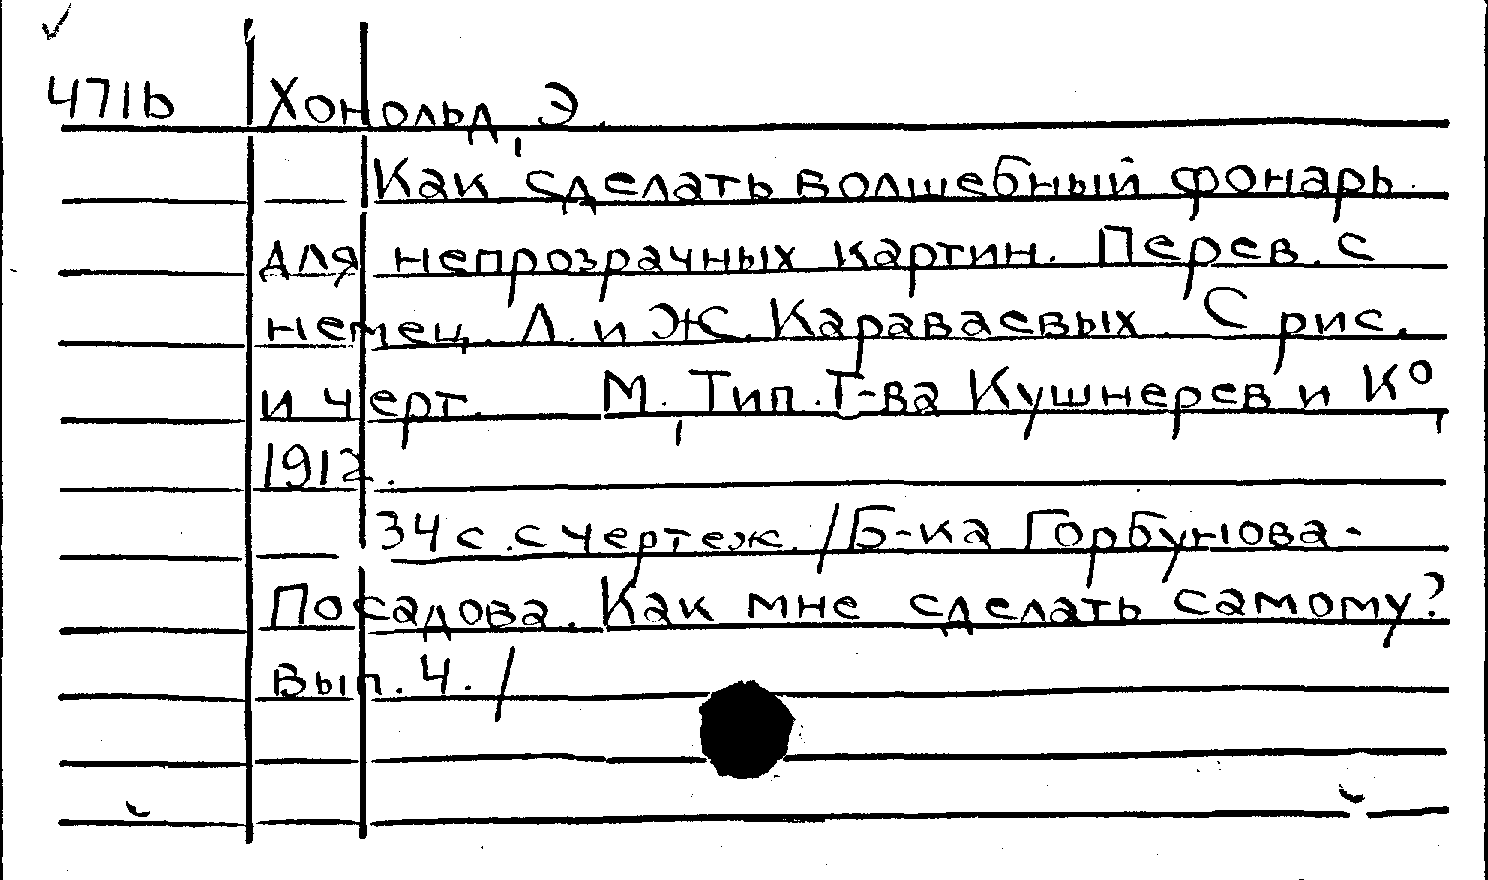 471b Хонольд, Э.
Как сделать волшебный фонарь
для непрозрачных картин. Перев. с
немец. Л. и Ж. Караваевых. С рис.
и черт. М., Тип. Т-ва Кушнерев и К⁰,
1912.
34 с. с чертеж. /Б-ка Горбунова-
Посадова. Как мне сделать самому?
Вып. 4./